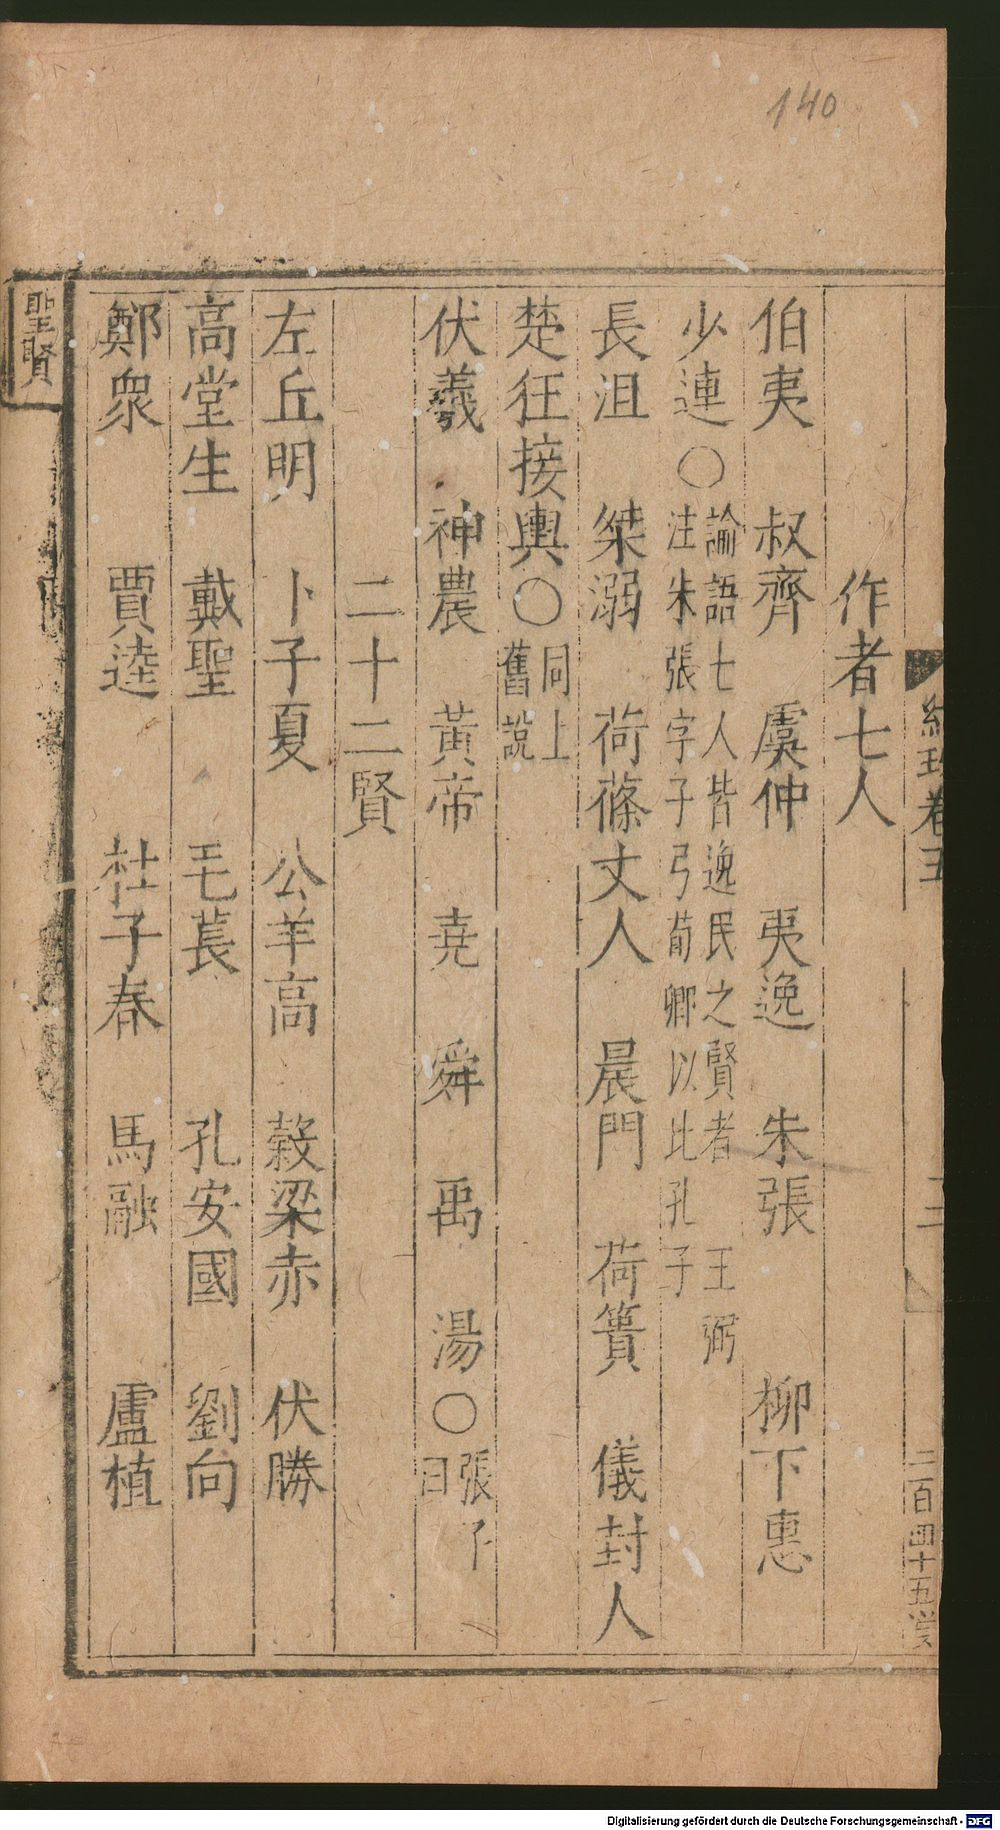 140
作者七人
伯夷 叔齊 虞仲 夷逸 朱張 柳下惠
少連○論語七人皆逸民之賢者 王弼
注朱張字子弓荀卿以比孔子
長沮 桀溺 荷蓧丈人 晨門 荷蕢 儀封人
楚狂接輿○同上
舊說
伏羲 神農 黃帝 堯 舜 禹 湯○張子
曰
二十二賢
左丘明 卜子夏 公羊高 穀梁赤 伏勝
高堂生 戴聖 毛萇 孔安國 劉向
鄭衆 賈逵 杜子春 馬融 盧植
聖賢
卷五
二百四十五
Digitalisierung gefördert durch die Deutsche Forschungsgemeinschaft - DFG